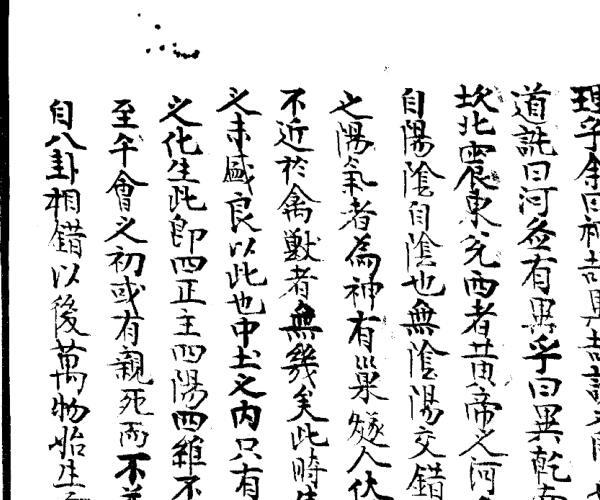 理乎余曰神哉異哉
道詵曰河啚有異乎曰異乾
坎北震東兌西者黃帝之河
自陽陰自陰也無陰陽交錯
之陽氣者為神有巢燧人伏
不近於禽獸者無幾矣此時
之未盛良以此也中土之內只有
之化生此即四正主四陽四維不
至午會之初或有親死而不
自八卦相錯以後萬物始生